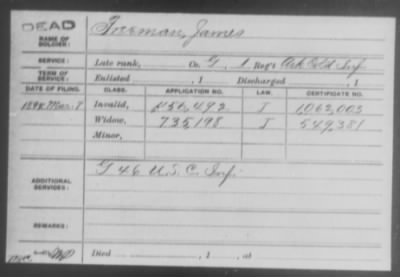 DEAD
NAME OF SOLDIER: Freeman, James
SERVICE: Late rank, Co. G, 1 Reg't Ark Cld Inf.
TERM OF SERVICE: Enlisted , 1 Discharged , 1
DATE OF FILING. CLASS. APPLICATION NO. LAW. CERTIFICATE NO.
Invalid, 450,492 I 1,063,003
Widow, 735,198 I 549,381
Minor,
ADDITIONAL SERVICES: G 46 U.S.C. Inf.
REMARKS:
Died , 1 , at